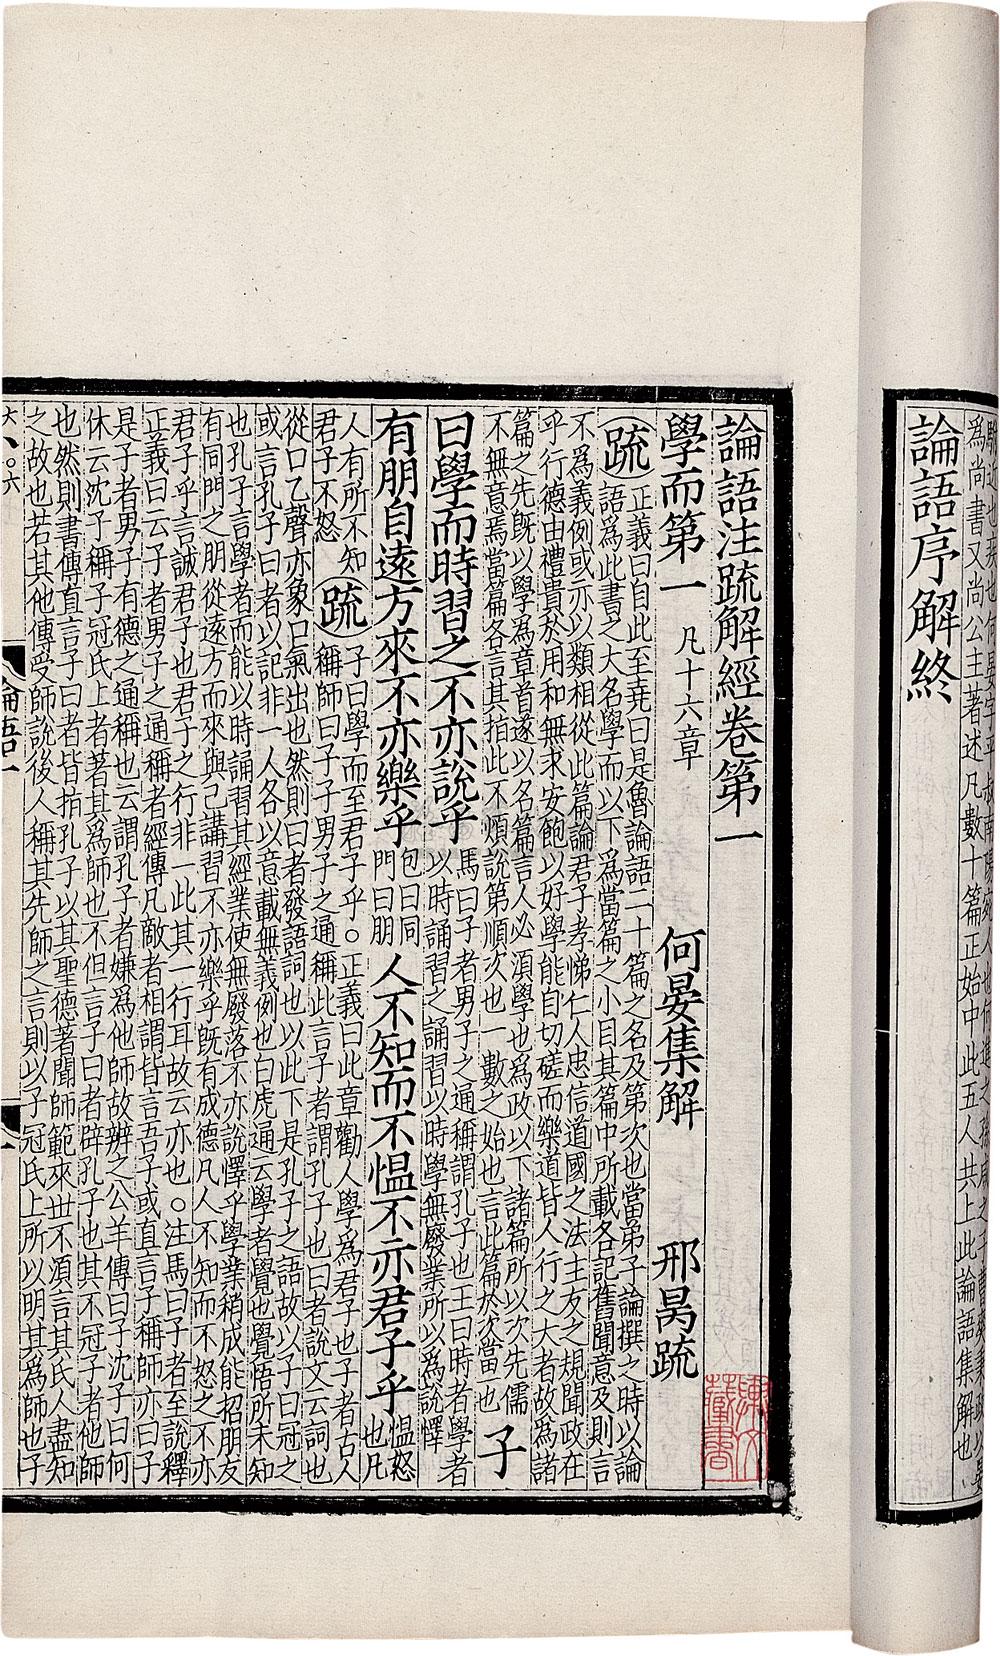 爲尚書又尚公主著述凡數十篇正始中此五人共上此論語集解也、
論語序解終
論語注疏解經卷第一
學而第一 凡十六章 何晏集解 邢昺疏
疏 正義曰自此至堯曰是魯論語二十篇之名及第次也當弟子論撰之時以論
語爲此書之大名學而以下爲當篇之小目其篇中所載各記舊聞意及則言
不爲義例或亦以類相從此篇論君子孝悌仁人忠信道國之法主友之規聞政在
乎行德由禮貴於用和無求安飽以好學能自切磋而樂道皆人行之大者故爲諸
篇之先既以學爲章首遂以名篇言人必須學也爲政以下諸篇所以次先儒
不無意焉當篇各言其指此不煩說第順次也一數之始也言此篇於次當一也
子
曰學而時習之不亦說乎
馬曰子者男子之通稱謂孔子也王曰時者學者
以時誦習之誦習以時學無廢業所以爲說懌
有朋自遠方來不亦樂乎
包曰同
門曰朋
人不知而不慍不亦君子乎
慍怒
也凡
人有所不知
君子不怒
疏
子曰學而至君子乎。正義曰此章勸人學爲君子也子者古人
稱師曰子子男子之通稱此言子者謂孔子也曰者說文云詞也
從口乙聲亦象口氣出也然則曰者發語詞也以此下是孔子之語故以子曰冠之
或言孔子曰者以記非一人各以意載無義例也白虎通云學者覺也覺悟所未知
也孔子言學者而能以時誦習其經業使無廢落不亦說懌乎學業稍成能招朋友
有同門之朋從遠方而來與己講習不亦樂乎既有成德凡人不知而不怒之不亦
君子乎言誠君子也君子之行非一此其一行耳故云亦也。注馬曰子者至說釋
正義曰云子者男子之通稱者經傳凡敵者相謂皆言吾子或直言子稱師亦曰子
是子者男子有德之通稱也云謂孔子者嫌爲他師故辨之公羊傳曰子沈子曰何
休云沈子稱子冠氏上者著其爲師也不但言子曰者辟孔子也其不冠子者他師
也然則書傳直言子曰者皆指孔子以其聖德著聞師範來世不須言其氏人盡知
之故也若其他傳受師說後人稱其先師之言則以子冠氏上所以明其爲師也子
論語一